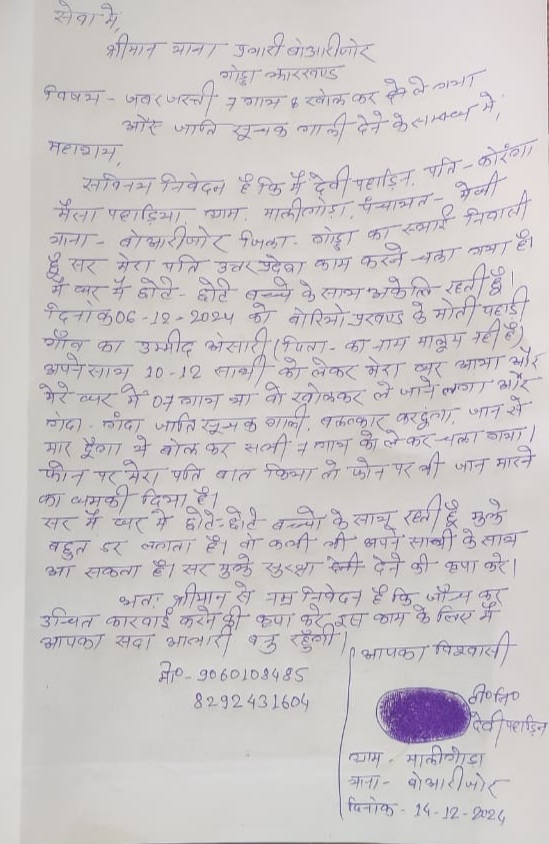 सेवा में,
श्रीमान थाना प्रभारी बोआरीजोर
गोड्डा झारखण्ड
विषय - जबरजस्ती 7 गाय खोल कर ले गया
और जाति सूचक गाली देने के सम्बन्ध में,
महाशय,
सविनय निवेदन है कि मैं देवी पहाड़िन, पति - कोरंगा
मैसा पहाड़िया, ग्राम - मालीगोड़ा, पंचायत - मेघी
थाना - बोआरीजोर जिला - गोड्डा का स्थाई निवासी
हूँ सर मेरा पति उत्तर प्रदेश काम करने चला गया है।
मैं घर में छोटे-छोटे बच्चे के साथ अकेलि रहती हूँ।
दिनांक 06-12-2024 को बोरियो प्रखण्ड के मोती पहाड़ी
गाँव का उम्मीद अंसारी (पिता - का नाम मालूम नही है)
अपने साथ 10-12 साथी को लेकर मेरा घर आया और
मेरे घर में 07 गाय था वो खोलकर ले जाने लगा और
गंदा - गंदा जाति सूचक गाली, बलत्कार कर दुंगा, जान से
मार दूँगा ये बोल कर सभी 7 गाय को ले कर चला गया।
फोन पर मेरा पति बात किया तो फोन पर भी जान मारने
का धमकी दिया है।
सर मैं घर में छोटे-छोटे बच्चो के साथ रहती हूँ मुझे
बहुत डर लगता है। वो कभी भी अपने साथी के साथ
आ सकता है। सर मुझे सुरक्षा देने की कृपा करे।
अतः श्रीमान से नम्र निवेदन है कि जाँच कर
उचित कारवाई करने की कृपा करे इस काम के लिए मैं
आपका सदा आभारी बनु रहुँगी।
आपका विश्वासी
मो० - 9060108485
8292431604
टी० नि०
देवी पहाड़िन
ग्राम - मालीगोड़ा
थाना - बोआरीजोर
दिनांक - 14-12-2024